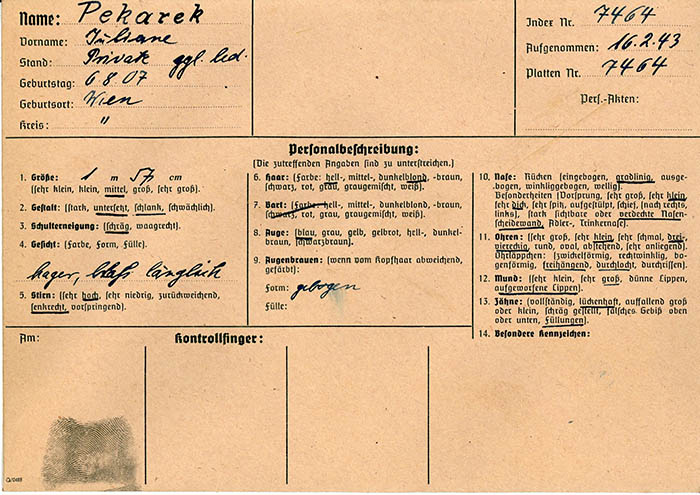 Name: Pekarek
Vorname: Juliane
Stand: Private ggl. led.
Geburtstag: 6.8.07
Geburtsort: Wien
Kreis: "
Index Nr. 7464
Aufgenommen: 16.2.43
Platten Nr. 7464
Pers.-Akten:
Personalbeschreibung:
(Die zutreffenden Angaben sind zu unterstreichen.)
1. Größe: 1 m 57 cm
(sehr klein, klein, mittel, groß, sehr groß).
2. Gestalt: (stark, untersetzt, schlank, schwächlich).
3. Schulterneigung: (schräg, waagrecht).
4. Gesicht: (Farbe, Form, Fülle).
hager, blaß länglich
5. Stirn: (sehr hoch, sehr niedrig, zurückweichend,
senkrecht, vorspringend).
6. Haar: (Farbe: hell-, mittel-, dunkelblond, -braun,
schwarz, rot, grau, graugemischt, weiß).
7. Bart: (Farbe: hell-, mittel-, dunkelblond, -braun,
schwarz, rot, grau, graugemischt, weiß).
8. Auge: (blau, grau, gelb, gelbrot, hell-, dunkel-
braun, schwarzbraun).
9. Augenbrauen: (wenn vom Kopfhaar abweichend,
gefärbt):
Form: gebogen
Fülle:
10. Nase: Rücken (eingebogen, gradlinig, ausge-
bogen, winkliggebogen, wellig).
Besonderheiten (Vorsprung, sehr groß, sehr klein,
sehr dick, sehr spitz, aufgestülpt, schief, (nach rechts,
links), stark sichtbare oder verdeckte Nasen-
scheidewand, Adler-, Trinkernase).
11. Ohren: (sehr groß, sehr klein, sehr schmal, drei-,
viereckig, rund, oval, abstehend, sehr anliegend).
Ohrläppchen: (zwickelförmig, rechtwinklig, bo-
genförmig, freihängend, durchlocht, durchrissen).
12. Mund: (sehr klein, sehr groß, dünne Lippen,
aufgeworfene Lippen).
13. Zähne: (vollständig, lückenhaft, auffallend groß
oder klein, schräg gestellt, falsches Gebiß oben
oder unten, Füllungen).
14. Besondere Kennzeichen:
Am:
Kontrollfinger: